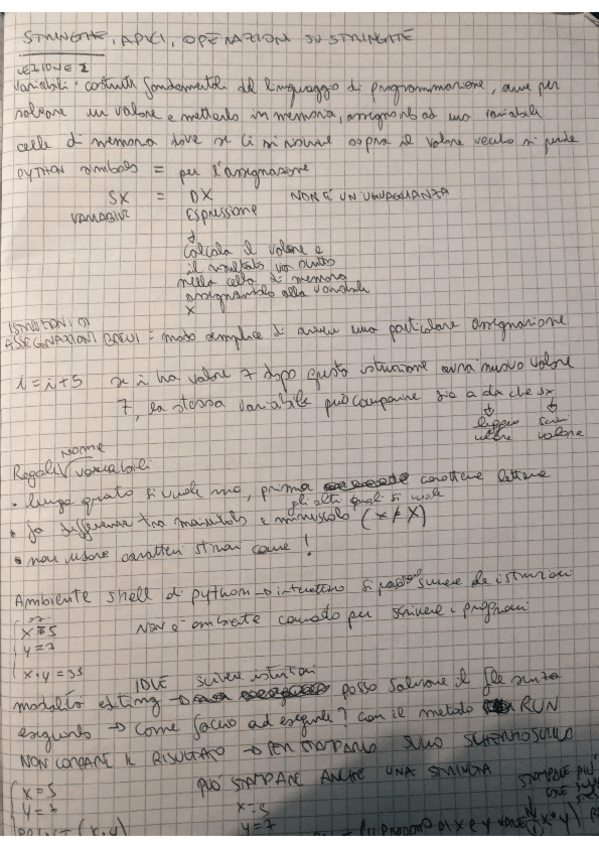 STRINGHE, APICI, OPERAZIONI SU STRINGHE
LEZIONE 2
Variabili: costrutti fondamentali del linguaggio di programmazione, per
salvare un valore e metterlo in memoria, assegnarlo ad una variabile
celle di memoria dove se ci si scrive sopra il valore vecchio si perde
PYTHON simbolo = per l'assegnazione
SX = DX NON È UN UGUAGLIANZA
VARIABILE ESPRESSIONE
calcola il valore e
il risultato va
nella cella di memoria
assegnandolo alla variabile
x
ISTRUZIONI DI
ASSEGNAZIONI BREVI: modo semplice di una particolare assegnazione
i = i+5 se i ha valore 7 dopo questa istruzione avrà nuovo valore
7, la stessa variabile può comparire sia a dx che sx
leggere scrivi
valore valore
nome
Regole variabili
• lungo quanto si vuole ma, primo carattere lettera
gli altri quali si vuole
• fa differenza tra maiuscolo e minuscolo (x ≠ X)
• non usare caratteri strani come !
Ambiente shell di python → interattivo si possono scrivere le istruzioni
x=5 NON è ambiente comodo per scrivere i programmi
y=7
x·y=35
IDLE scrivere istruzioni
modalità editing → posso salvare il file senza
eseguirlo → Come faccio ad eseguirlo? con il metodo RUN
NON COMPARE IL RISULTATO → PER STAMPARLO SULLO SCHERMO
x=5 PUÒ STAMPARE ANCHE UNA STRINGA STAMPARE PIÙ
y=7 x=5
PRINT (x·y) y=7 PRODOTTO DI x e y VALE